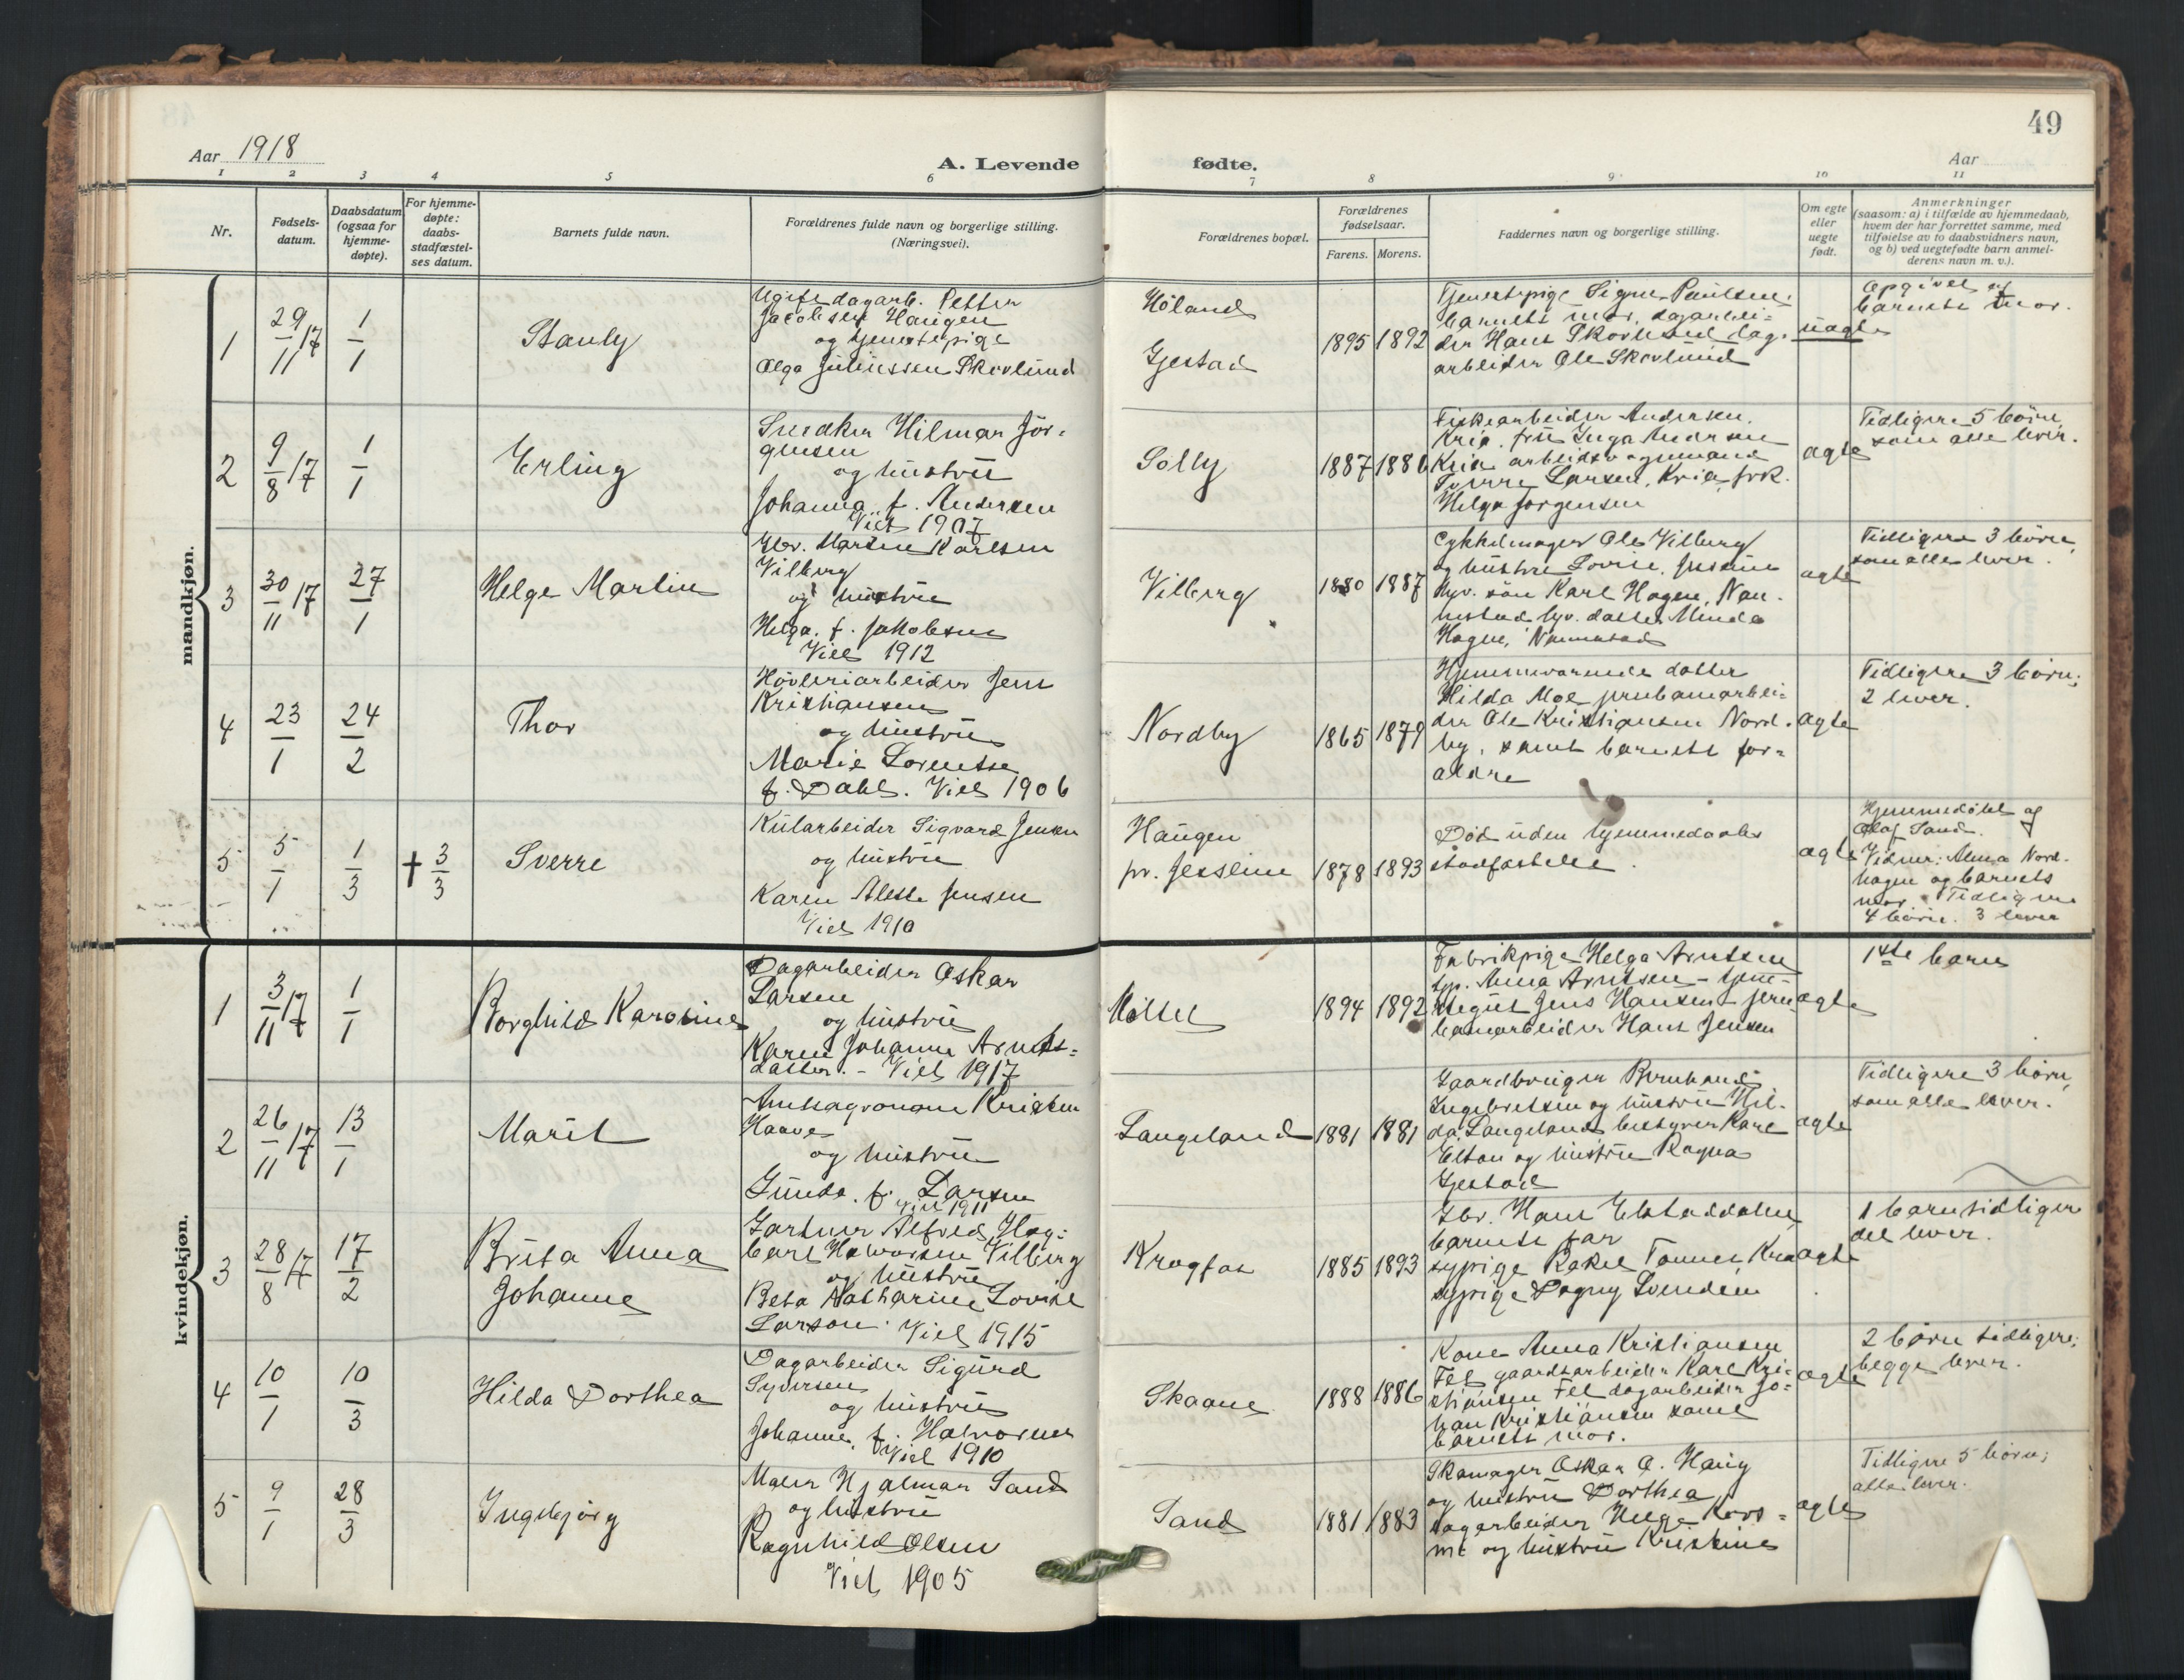 49
Aar 1918
A. Levende fødte.
Aar
1 2 3 4 5 6 7 8 9 10 11
Nr.
Fødsels-
datum.
Daabsdatum
(ogsaa for
hjemme-
døpte).
For hjemme-
døpte:
daabs-
stadfæstel-
ses datum.
Barnets fulde navn.
Forældrenes fulde navn og borgerlige stilling.
(Næringsvei).
Forældrenes bopæl.
Forældrenes
fødselsaar.
Farens. Morens.
Faddernes navn og borgerlige stilling.
Om egte
eller
uegte
født.
Anmerkninger
(saasom: a) i tilfælde av hjemmedaab,
hvem der har forrettet samme, med
tilføielse av to daabsvidners navn,
og b) ved uegtefødte barn anmel-
derens navn m. v.).
mandkjøn.
1
29/11 17
1/1
Stanly
Ugifte dagarb. Petter
Jacobsen Haugen
og tjenestepige
Olga Juliussen Skovlund
Høland
Gjestad
1895 1892
Tjenestepige Signe Paulsen,
barnets mor, dagarbei-
der Hans Skovlund dag-
arbeider Ole Skovlund
uægte
Opgivet af
barnets mor.
2
9/8 17
1/1
Erling
Snedker Hilmar Jör-
gensen
og hustru
Johanna f. Andersen
Viet 1907
Solly
1887 1886
Fiskearbeider Andersen,
Kria, frü Inga Andersen
Kria arbeidsvognmand
Sverre Larsen, Kria, frk.
Helga Jorgensen
ægte
Tidligere 5 börn,
som alle lever.
3
30/11 17
27/1
Helge Martin
Gbr. Martin Karlsen
Vilberg
og hustru
Helga f. Jakobsen
Viet 1912
Vilberg
1880 1887
Cykkelmager Ole Vilberg
og hustru Lovise,
søn Karl Hagen, Nan-
nestad datter Minda
Hagen, Nannestad
ægte
Tidligere 3 börn,
som alle lever.
4
23/1
24/2
Thor
Hövleriarbeider Jens
Kristiansen
og hustru
Marie Lorentse
f. Dahl. Viet 1906
Nordby
1865 1879
Hjemmeværende datter
Hilda Moe jernbanearbei-
der Ole Kristiansen Nord-
by, samt barnets for-
ældre
ægte
Tidligere 3 börn,
2 lever.
5
5/1
1/3
† 3/3
Sverre
Kularbeider Sigvard Jensen
og hustru
Karen Alette Jensen
Viet 1910
Haugen
pr. Jessheim
1878 1893
Död uden hjemmedaabs
stadfæstelse.
ægte
Hjemmedöbt af
Olaf Sand.
Vidner: Alma Nord-
hagen og barnets
mor. Tidligere
4 börn. 3 lever
kvindekjøn.
1
3/11 17
1/1
Borghild Karoline
Dagarbeider Oskar
Larsen
og hustru
Karen Johanne Arnts-
datter. - Viet 1917
Moltet
1894 1892
Fabrikpige Helga Arntsen
Anna Arntsen -
Jens Hansen - jern-
banearbeider Hans Jensen
ægte
1ste barn
2
26/11 17
13/1
Marit
Amtsagronom Kristen
Haave
og hustru
Gunda f. Larsen
Viet 1911
Langeland
1881 1881
Gaardbruger Bernhard
Ingebretsen og hustru Hil-
da, Langeland, bestyrer Karl
Elton og hustru Ragna
Gjestad
ægte
Tidligere 3 börn,
som alle lever.
3
28/8 17
17/2
Brita Anna
Johanne
Gartner Alfred Hag-
bart Halvorsen Vilberg
og hustru
Beta Katharine Lovise
Larson. Viet 1915
Krogfos
1885 1893
Gbr. Hans Elstaddalen,
barnets far
sypige Rakel Tannes, Kria
sypige Dagny Svendsen
ægte
1 barn tidligere
det lever.
4
10/1
10/3
Hilda Dorthea
Dagarbeider Sigurd
Syversen
og hustru
Johanne f. Halvorsen
Viet 1910
Skaane
1888 1886
Kone Anna Kristiansen
gaardsarbeider Karl Kri-
stiansen dagarbeider Jo-
han Kristiansen samt
barnets mor.
ægte
2 börn tidligere;
begge lever.
5
9/1
28/3
Ingebjörg
Maler Hjalmar Sand
og hustru
Ragnhild Olsen
Viet 1905
Sand
1881 1883
Skomager Oskar A. Haug
og hustru Dorthea
dagarbeider Helge Kors-
mo og hustru Kristine
ægte
Tidligere 5 börn;
alle lever.